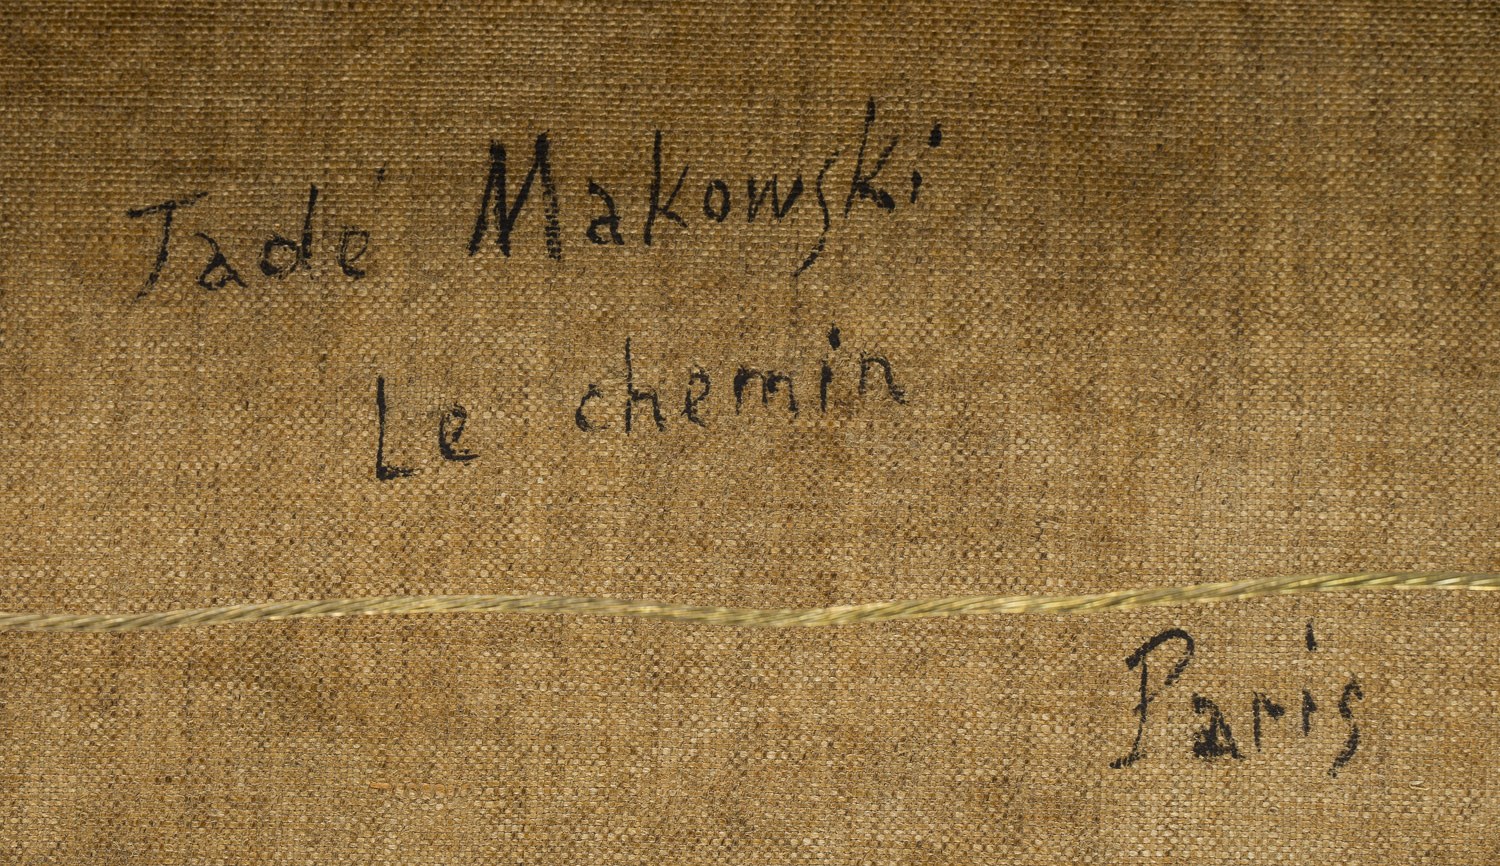 Tadé Makowski
Le chemin
Paris